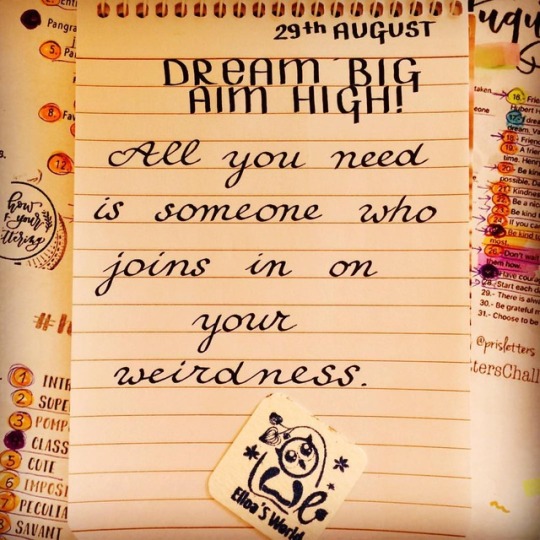 29th AUGUST
DREAM BIG
AIM HIGH!
All you need
is someone who
joins in on
your
weirdness.
Elloa'S World
Pangra
5.
8.
12.
how
your
ttering
1 INTR
2 SUPE
3 POMP
CLASS
5 CUTE
6 IMPOSI
7 PECULIA
8 SAVANT
taken
eone
16.- Frie
Hubert H
17.- I drea
dream. Va
18.- Friend
19.- A frien
time. Henr
20.- Be kind
possible. Da
21.- Kindnes
22.- Be a nic
23.- Be kind
24.- If you ca
Be kind
most.
26.- Don't wai
them how.
Have coura
28.- Start each da
29.- There is alwa
30.- Be grateful
31.- Choose to be
@prisletters
tersChall